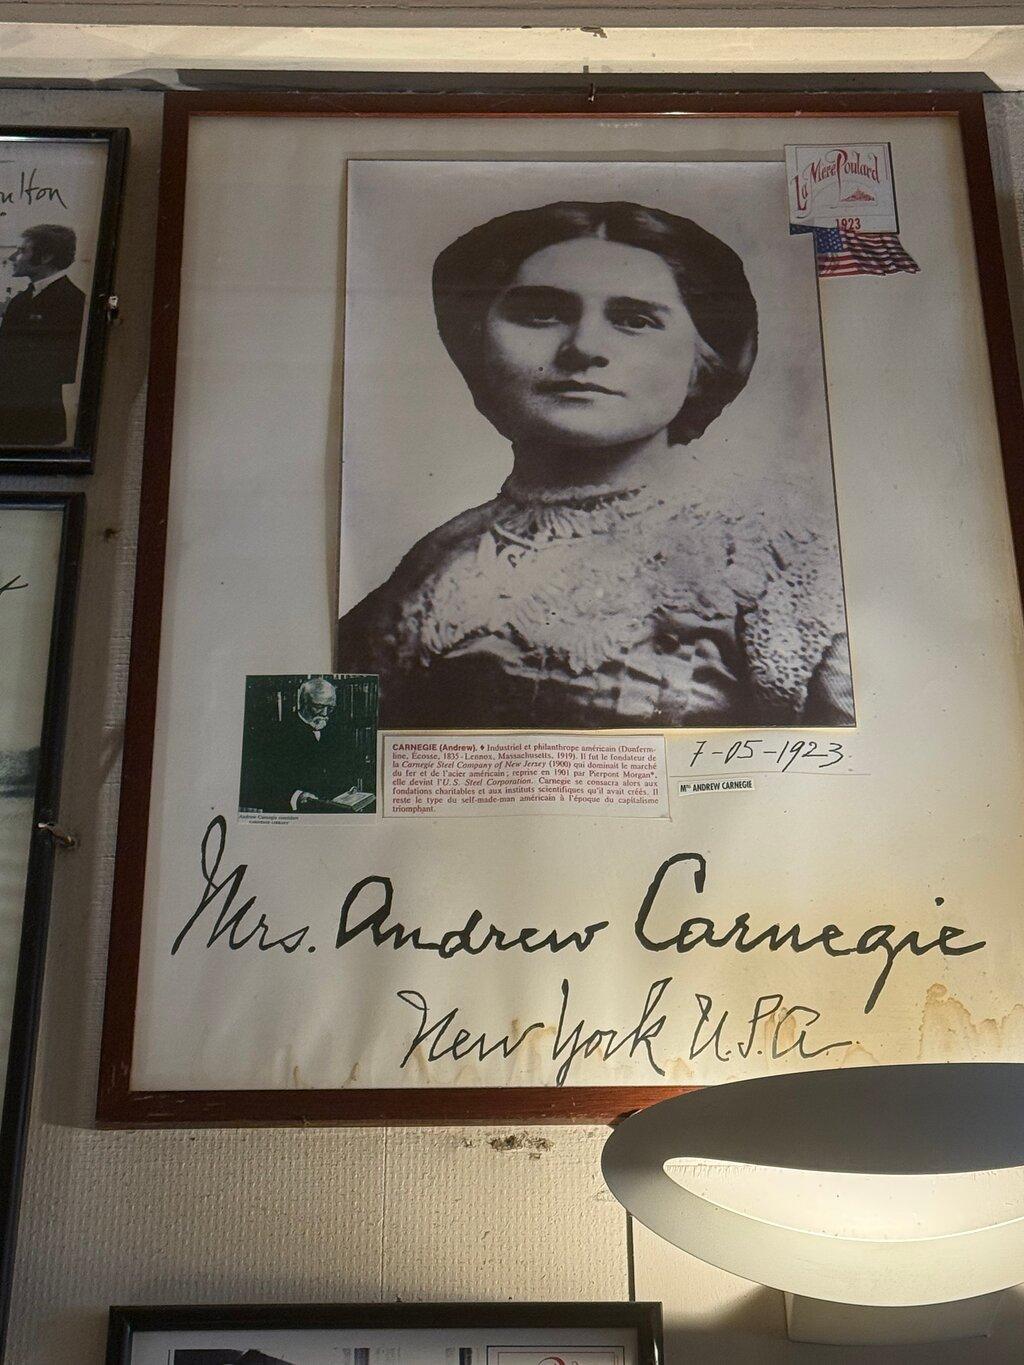 La Mère Poulard
1923
CARNEGIE (Andrew). ♦ Industriel et philanthrope américain (Dunferm-
line, Écosse, 1835 - Lennox, Massachusetts, 1919). Il fut le fondateur de
la Carnegie Steel Company of New Jersey (1900) qui dominait le marché
du fer et de l'acier américain ; reprise en 1901 par Pierpont Morgan*,
elle devint l'U. S. Steel Corporation. Carnegie se consacra alors aux
fondations charitables et aux instituts scientifiques qu'il avait créés. Il
reste le type du self-made-man américain à l'époque du capitalisme
triomphant.
7-05-1923.
Mrs ANDREW CARNEGIE
Andrew Carnegie
CARNEGIE LIBRARY
Mrs. Andrew Carnegie
New York U.S.A.